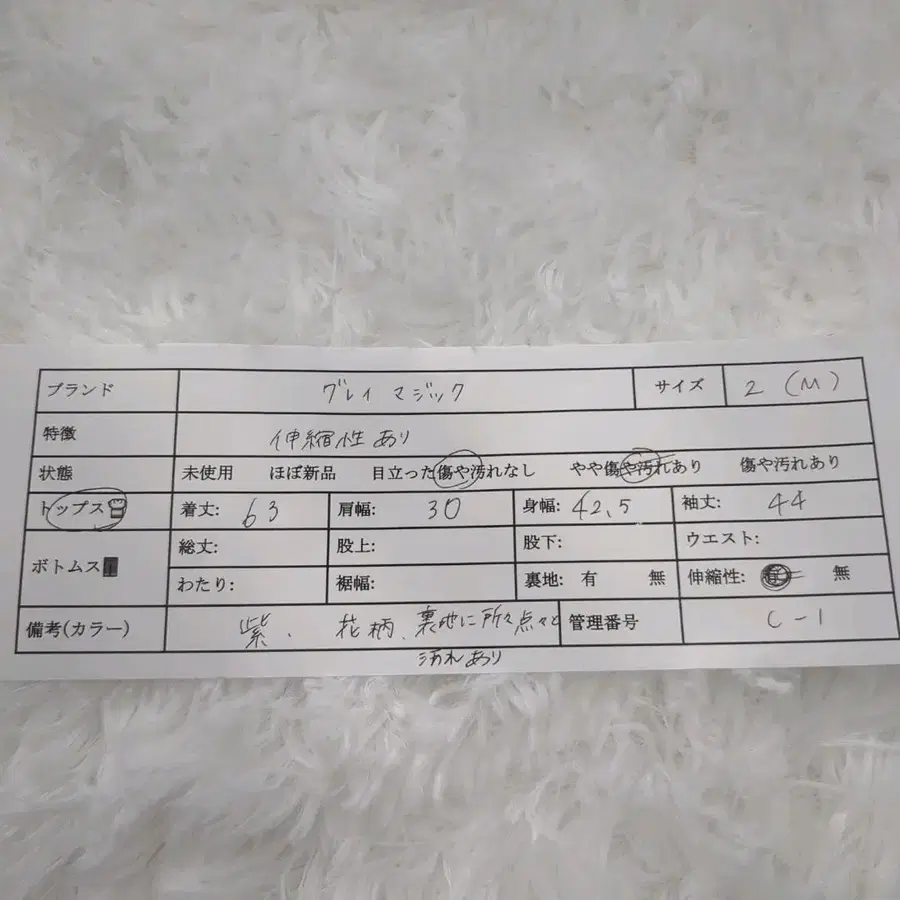 ブランド グレイ マジック サイズ 2 (M)
特徴 伸縮性あり
状態 未使用 ほぼ新品 目立った傷や汚れなし やや傷や汚れあり 傷や汚れあり
トップス 着丈: 63 肩幅: 30 身幅: 42.5 袖丈: 44
ボトムス 総丈: 股上: 股下: ウエスト:
わたり: 裾幅: 裏地: 有 無 伸縮性: 有 無
備考(カラー) 紫、花柄、裏地に所々点々と 管理番号 C-1
汚れあり